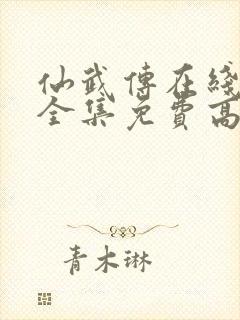 仙武傳在綫
全集免費高
青木琳